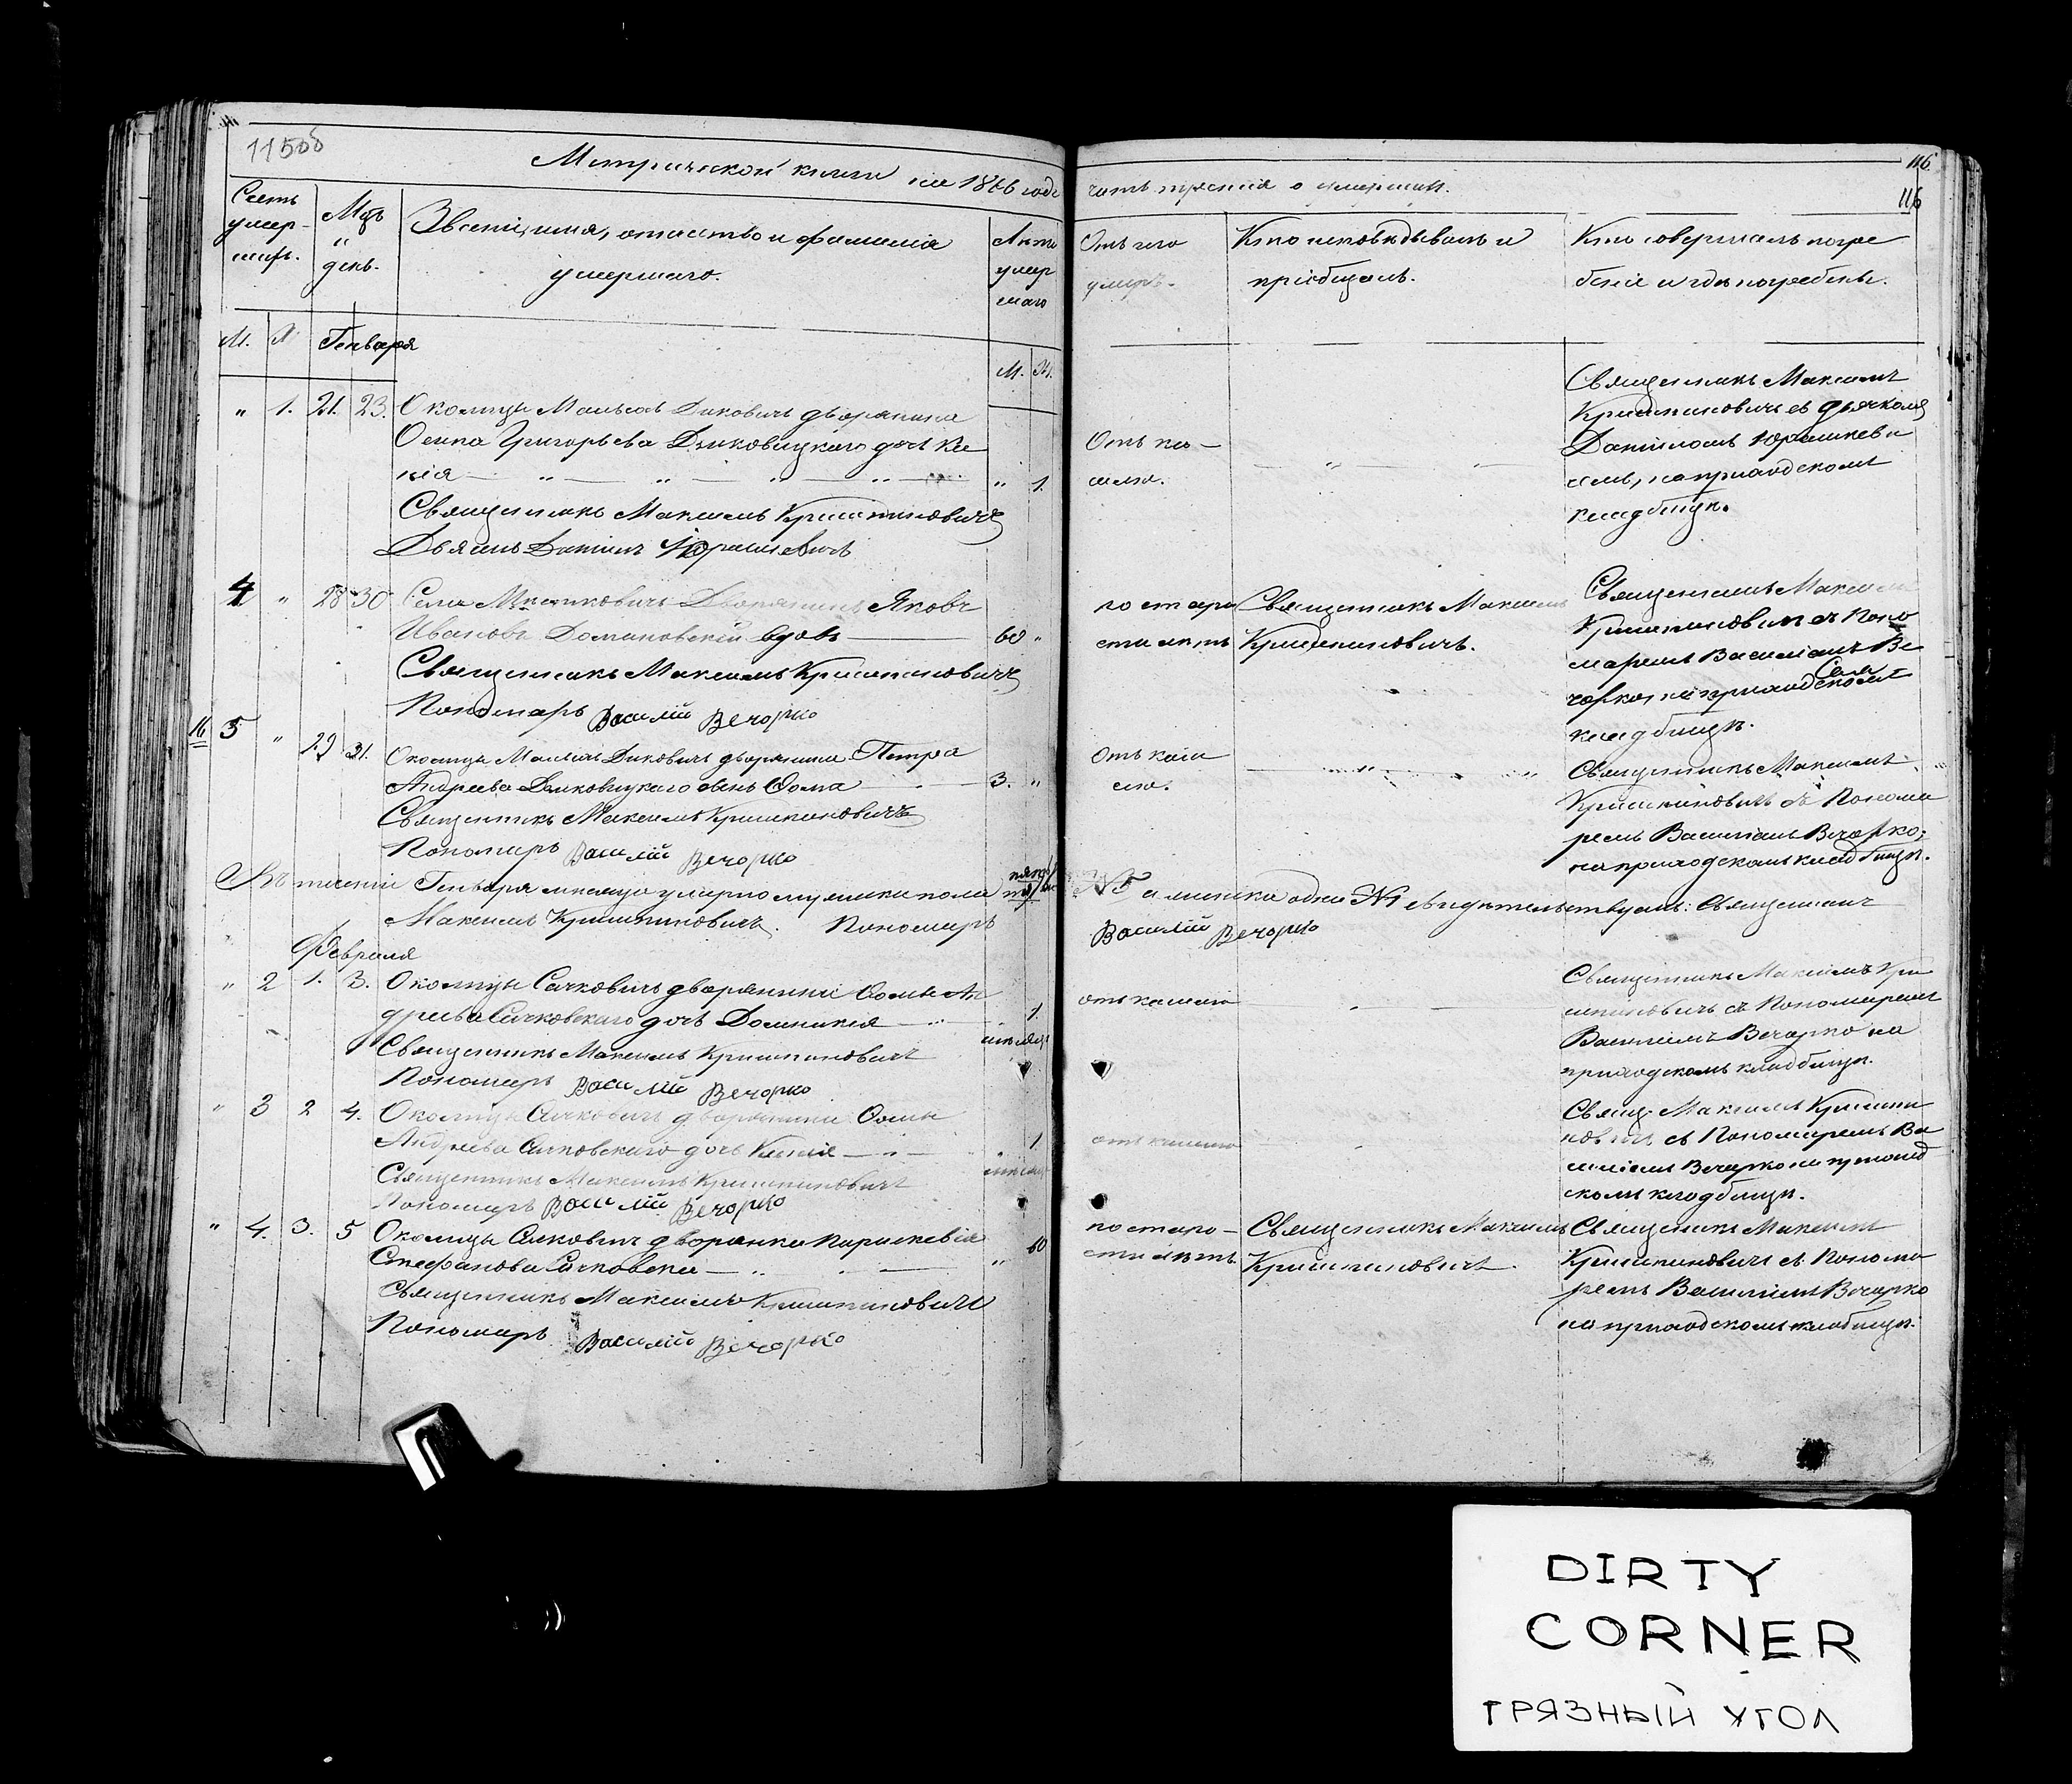 115об
Метрической книги на 1866 годъ
часть третія о умершихъ.
116
116
Счетъ умершихъ.
Мцъ и день.
Званіе, имя, отчество и фамилія умершаго.
Лета умершаго
Отъ чего умеръ.
Кто исповѣдывалъ и пріобщалъ.
Кто совершалъ погребеніе и гдѣ погребены.
М. Ж
Генваря
М. Ж.
" 1. 21. 23. Околицы Малыхъ Диковичъ дворянина
Осипа Григорьева Диковицкаго дочь Ксе
нія " " " " " 1.
Священникъ Максимъ Криштиновичъ
Дьякъ Даніилъ Юрашкевичъ
Отъ ка-
шлю.
" "
Священникъ Максимъ
Криштиновичъ съ дьячкомъ
Даніиломъ Юрашкеви
чемъ, на приходскомъ
кладбищѣ.
4 " 28 30 Села Дворянинъ Яковъ
Ивановъ Домановскій вдовъ 60 "
Священникъ Максимъ Криштиновичъ
Пономарь Василій Вечорко
по старо
сти лѣтъ
Священникъ Максимъ
Криштиновичъ.
Священникъ Максимъ
Криштиновичъ съ Поно
маремъ Василіемъ Ве
чорко, на приходскомъ
кладбищѣ.
16 5 " 29 31. Околицы Малыхъ Диковичъ дворянина Петра
Андреева Диковицкаго сынъ Ѳома 3. "
Священникъ Максимъ Криштиновичъ
Пономарь Василій Вечорко
Отъ каш
лю.
" "
Священникъ Максимъ
Криштиновичъ съ Понома
ремъ Василіемъ Вечорко,
на приходскомъ кладбищѣ.
Въ теченіи Генваря мѣсяца умерло мужеска пола пять
№5 а женска одна №1 свидѣтельствуемъ: Священникъ
Максимъ Криштиновичъ. Пономарь
Василій Вечорко
Февраля
" 2 1. 3. Околицы Сачковичъ дворянина Ѳомы Ан
дреева Сачковскаго дочь Домникія 1.
мѣсяцъ
Священникъ Максимъ Криштиновичъ
Пономарь Василій Вечорко
отъ кашлю
Священникъ Максимъ Кри
штиновичъ съ Пономаремъ
Василіемъ Вечорко на
приходскомъ кладбищѣ.
" 3 2 4. Околицы Сачковичъ дворянина Ѳомы
Андреева Сачковскаго дочь Ксенія 1
мѣсяцъ
Священникъ Максимъ Криштиновичъ
Пономарь Василій Вечорко
отъ кашлю
Свящ. Максимъ Кришти
новичъ съ Пономаремъ Ва
силіемъ Вечорко на приход
скомъ кладбищѣ.
" 4. 3. 5 Околицы Сачковичъ дворянка Параскевія
Стефанова Сачковска " 60
Священникъ Максимъ Криштиновичъ
Пономарь Василій Вечорко
по старо-
сти лѣтъ.
Священникъ Максимъ
Криштиновичъ.
Священникъ Максимъ
Криштиновичъ съ Понома
ремъ Василіемъ Вечорко
на приходскомъ кладбищѣ.
DIRTY
CORNER
ГРЯЗНЫЙ УГОЛ